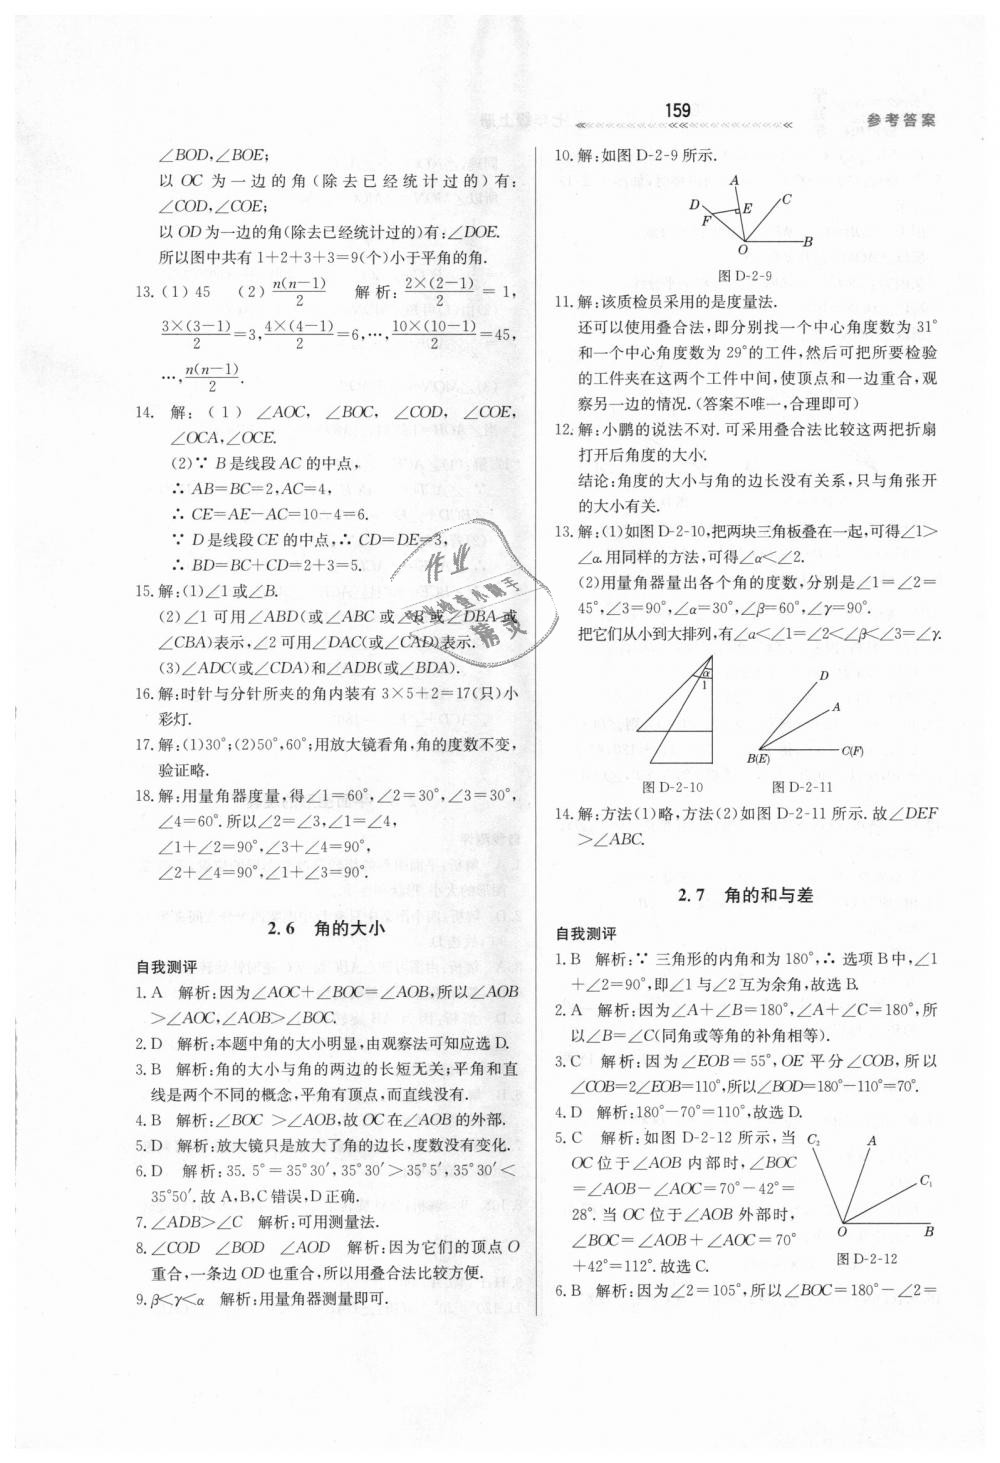 159
参考答案
∠BOD,∠BOE;
以 OC 为一边的角(除去已经统计过的)有:
∠COD,∠COE;
以 OD 为一边的角(除去已经统计过的)有:∠DOE.
所以图中共有 1+2+3+3=9(个)小于平角的角.
13.(1)45 (2)n(n-1)/2 解析:2×(2-1)/2=1,
3×(3-1)/2=3,4×(4-1)/2=6,…,10×(10-1)/2=45,
…,n(n-1)/2.
14. 解:(1)∠AOC,∠BOC,∠COD,∠COE,
∠OCA,∠OCE.
(2)∵ B 是线段 AC 的中点,
∴ AB=BC=2,AC=4,
∴ CE=AE-AC=10-4=6.
∵ D 是线段 CE 的中点,∴ CD=DE=3,
∴ BD=BC+CD=2+3=5.
15. 解:(1)∠1 或∠B.
(2)∠1 可用∠ABD(或∠ABC 或∠B 或∠DBA 或
∠CBA)表示,∠2 可用∠DAC(或∠CAD)表示.
(3)∠ADC(或∠CDA)和∠ADB(或∠BDA).
16. 解:时针与分针所夹的角内装有 3×5+2=17(只)小
彩灯.
17. 解:(1)30°;(2)50°,60°;用放大镜看角,角的度数不变,
验证略.
18. 解:用量角器度量,得∠1=60°,∠2=30°,∠3=30°,
∠4=60°.所以∠2=∠3,∠1=∠4,
∠1+∠2=90°,∠3+∠4=90°,
∠2+∠4=90°,∠1+∠3=90°.
2.6 角的大小
自我测评
1. A 解析:因为∠AOC+∠BOC=∠AOB,所以∠AOB
>∠AOC,∠AOB>∠BOC.
2. D 解析:本题中角的大小明显,由观察法可知应选 D.
3. B 解析:角的大小与角的两边的长短无关;平角和直
线是两个不同的概念,平角有顶点,而直线没有.
4. B 解析:∠BOC >∠AOB,故 OC 在∠AOB 的外部.
5. D 解析:放大镜只是放大了角的边长,度数没有变化.
6. D 解析:35.5°=35°30′,35°30′>35°5′,35°30′<
35°50′.故 A,B,C 错误,D 正确.
7. ∠ADB>∠C 解析:可用测量法.
8. ∠COD ∠BOD ∠AOD 解析:因为它们的顶点 O
重合,一条边 OD 也重合,所以用叠合法比较方便.
9. β<γ<α 解析:用量角器测量即可.
作业
作业检查小助手
精灵
10. 解:如图 D-2-9 所示.
A
C
D
E
F
O
B
图 D-2-9
11. 解:该质检员采用的是度量法.
还可以使用叠合法,即分别找一个中心角度数为 31°
和一个中心角度数为 29°的工件,然后可把所要检验
的工件夹在这两个工件中间,使顶点和一边重合,观
察另一边的情况.(答案不唯一,合理即可)
12. 解:小鹏的说法不对.可采用叠合法比较这两把折扇
打开后角度的大小.
结论:角度的大小与角的边长没有关系,只与角张开
的大小有关.
13. 解:(1)如图 D-2-10,把两块三角板叠在一起,可得∠1>
∠α.用同样的方法,可得∠α<∠2.
(2)用量角器量出各个角的度数,分别是∠1=∠2=
45°,∠3=90°,∠α=30°,∠β=60°,∠γ=90°.
把它们从小到大排列,有∠α<∠1=∠2<∠β<∠3=∠γ.
α
1
D
A
B(E)
C(F)
图 D-2-10 图 D-2-11
14. 解:方法(1)略,方法(2)如图 D-2-11 所示.故∠DEF
>∠ABC.
2.7 角的和与差
自我测评
1. B 解析:∵ 三角形的内角和为 180°,∴ 选项 B 中,∠1
+∠2=90°,即∠1 与∠2 互为余角,故选 B.
2. A 解析:因为∠A+∠B=180°,∠A+∠C=180°,所
以∠B=∠C(同角或等角的补角相等).
3. C 解析:因为∠EOB=55°,OE 平分∠COB,所以
∠COB=2∠EOB=110°,所以∠BOD=180°-110°=70°.
4. D 解析:180°-70°=110°,故选 D.
5. C 解析:如图 D-2-12 所示,当
OC 位于∠AOB 内部时,∠BOC
=∠AOB-∠AOC=70°-42°=
28°.当 OC 位于∠AOB 外部时,
∠BOC=∠AOB+∠AOC=70°
+42°=112°.故选 C.
C₂
A
C₁
O
B
图 D-2-12
6. B 解析:因为∠2=105°,所以∠BOC=180°-∠2=